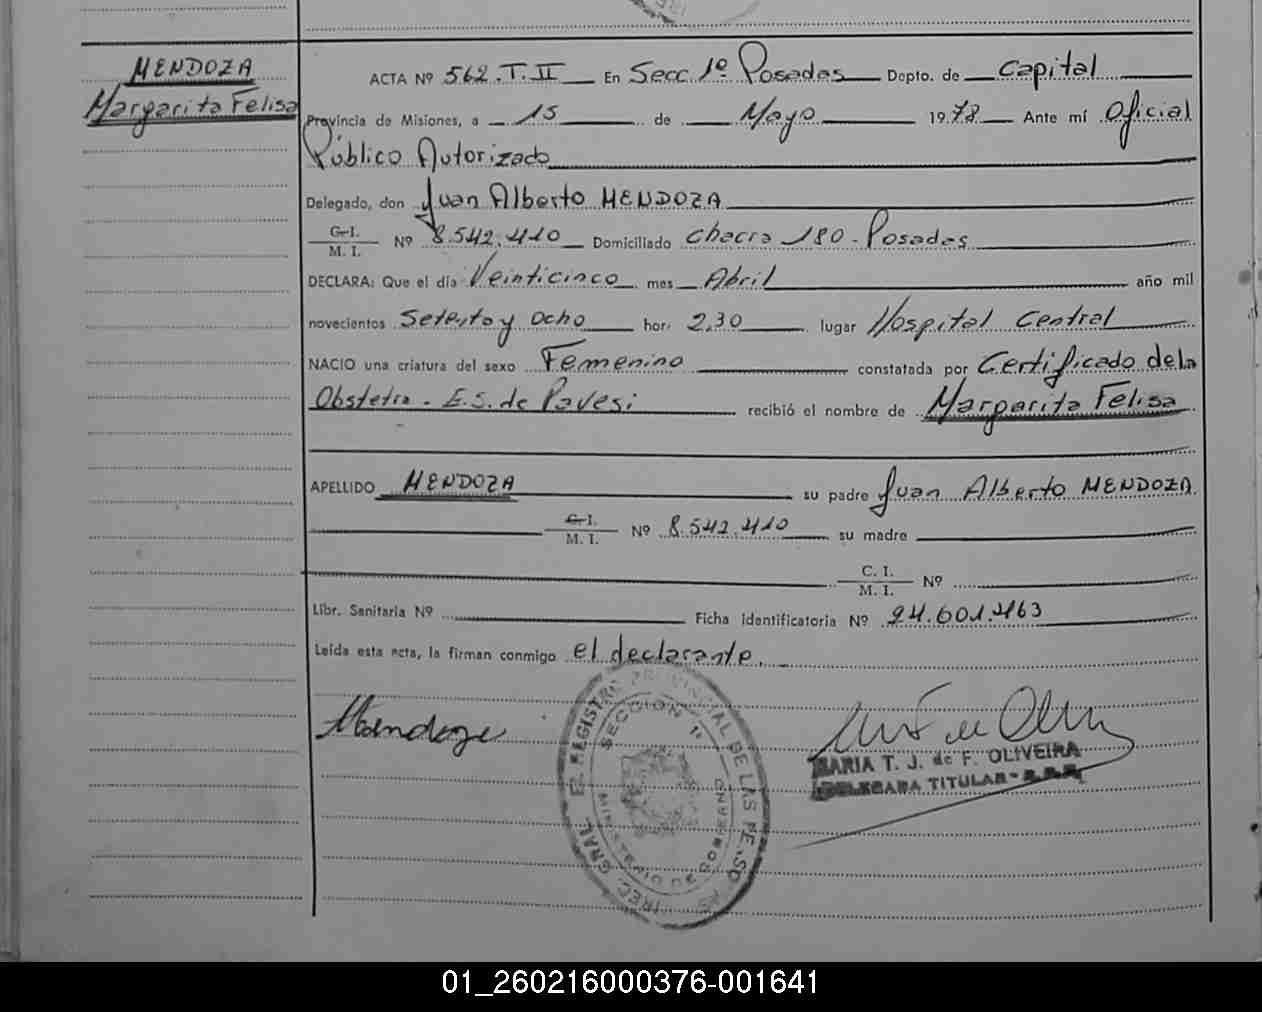 MENDOZA
Margarita Felisa
ACTA Nº 562.T.II En Secc. 1º Posadas Depto. de Capital
Provincia de Misiones, a 15 de Mayo 1978 Ante mí Oficial
Público Autorizado
Delegado, don Juan Alberto MENDOZA
C.I.
M. I. Nº 8.542.410 Domiciliado chacra 180-Posadas
DECLARA: Que el día Veinticinco mes Abril año mil
novecientos Setenta y ocho hor. 2,30 lugar Hospital Central
NACIO una criatura del sexo Femenino constatada por Certificado de la
Obstetra - E.S. de Pavesi recibió el nombre de Margarita Felisa
APELLIDO MENDOZA su padre Juan Alberto MENDOZA
C.I.
M. I. Nº 8.542.410 su madre
C. I.
M. I. Nº
Libr. Sanitaria Nº Ficha Identificatoria Nº 24.601.463
Leída esta acta, la firman conmigo el declarante.
Mendoza
SECCION 1ª
MINISTERIO DE GOBIERNO
MARIA T. J. de F. OLIVEIRA
DELEGADA TITULAR
01_260216000376-001641